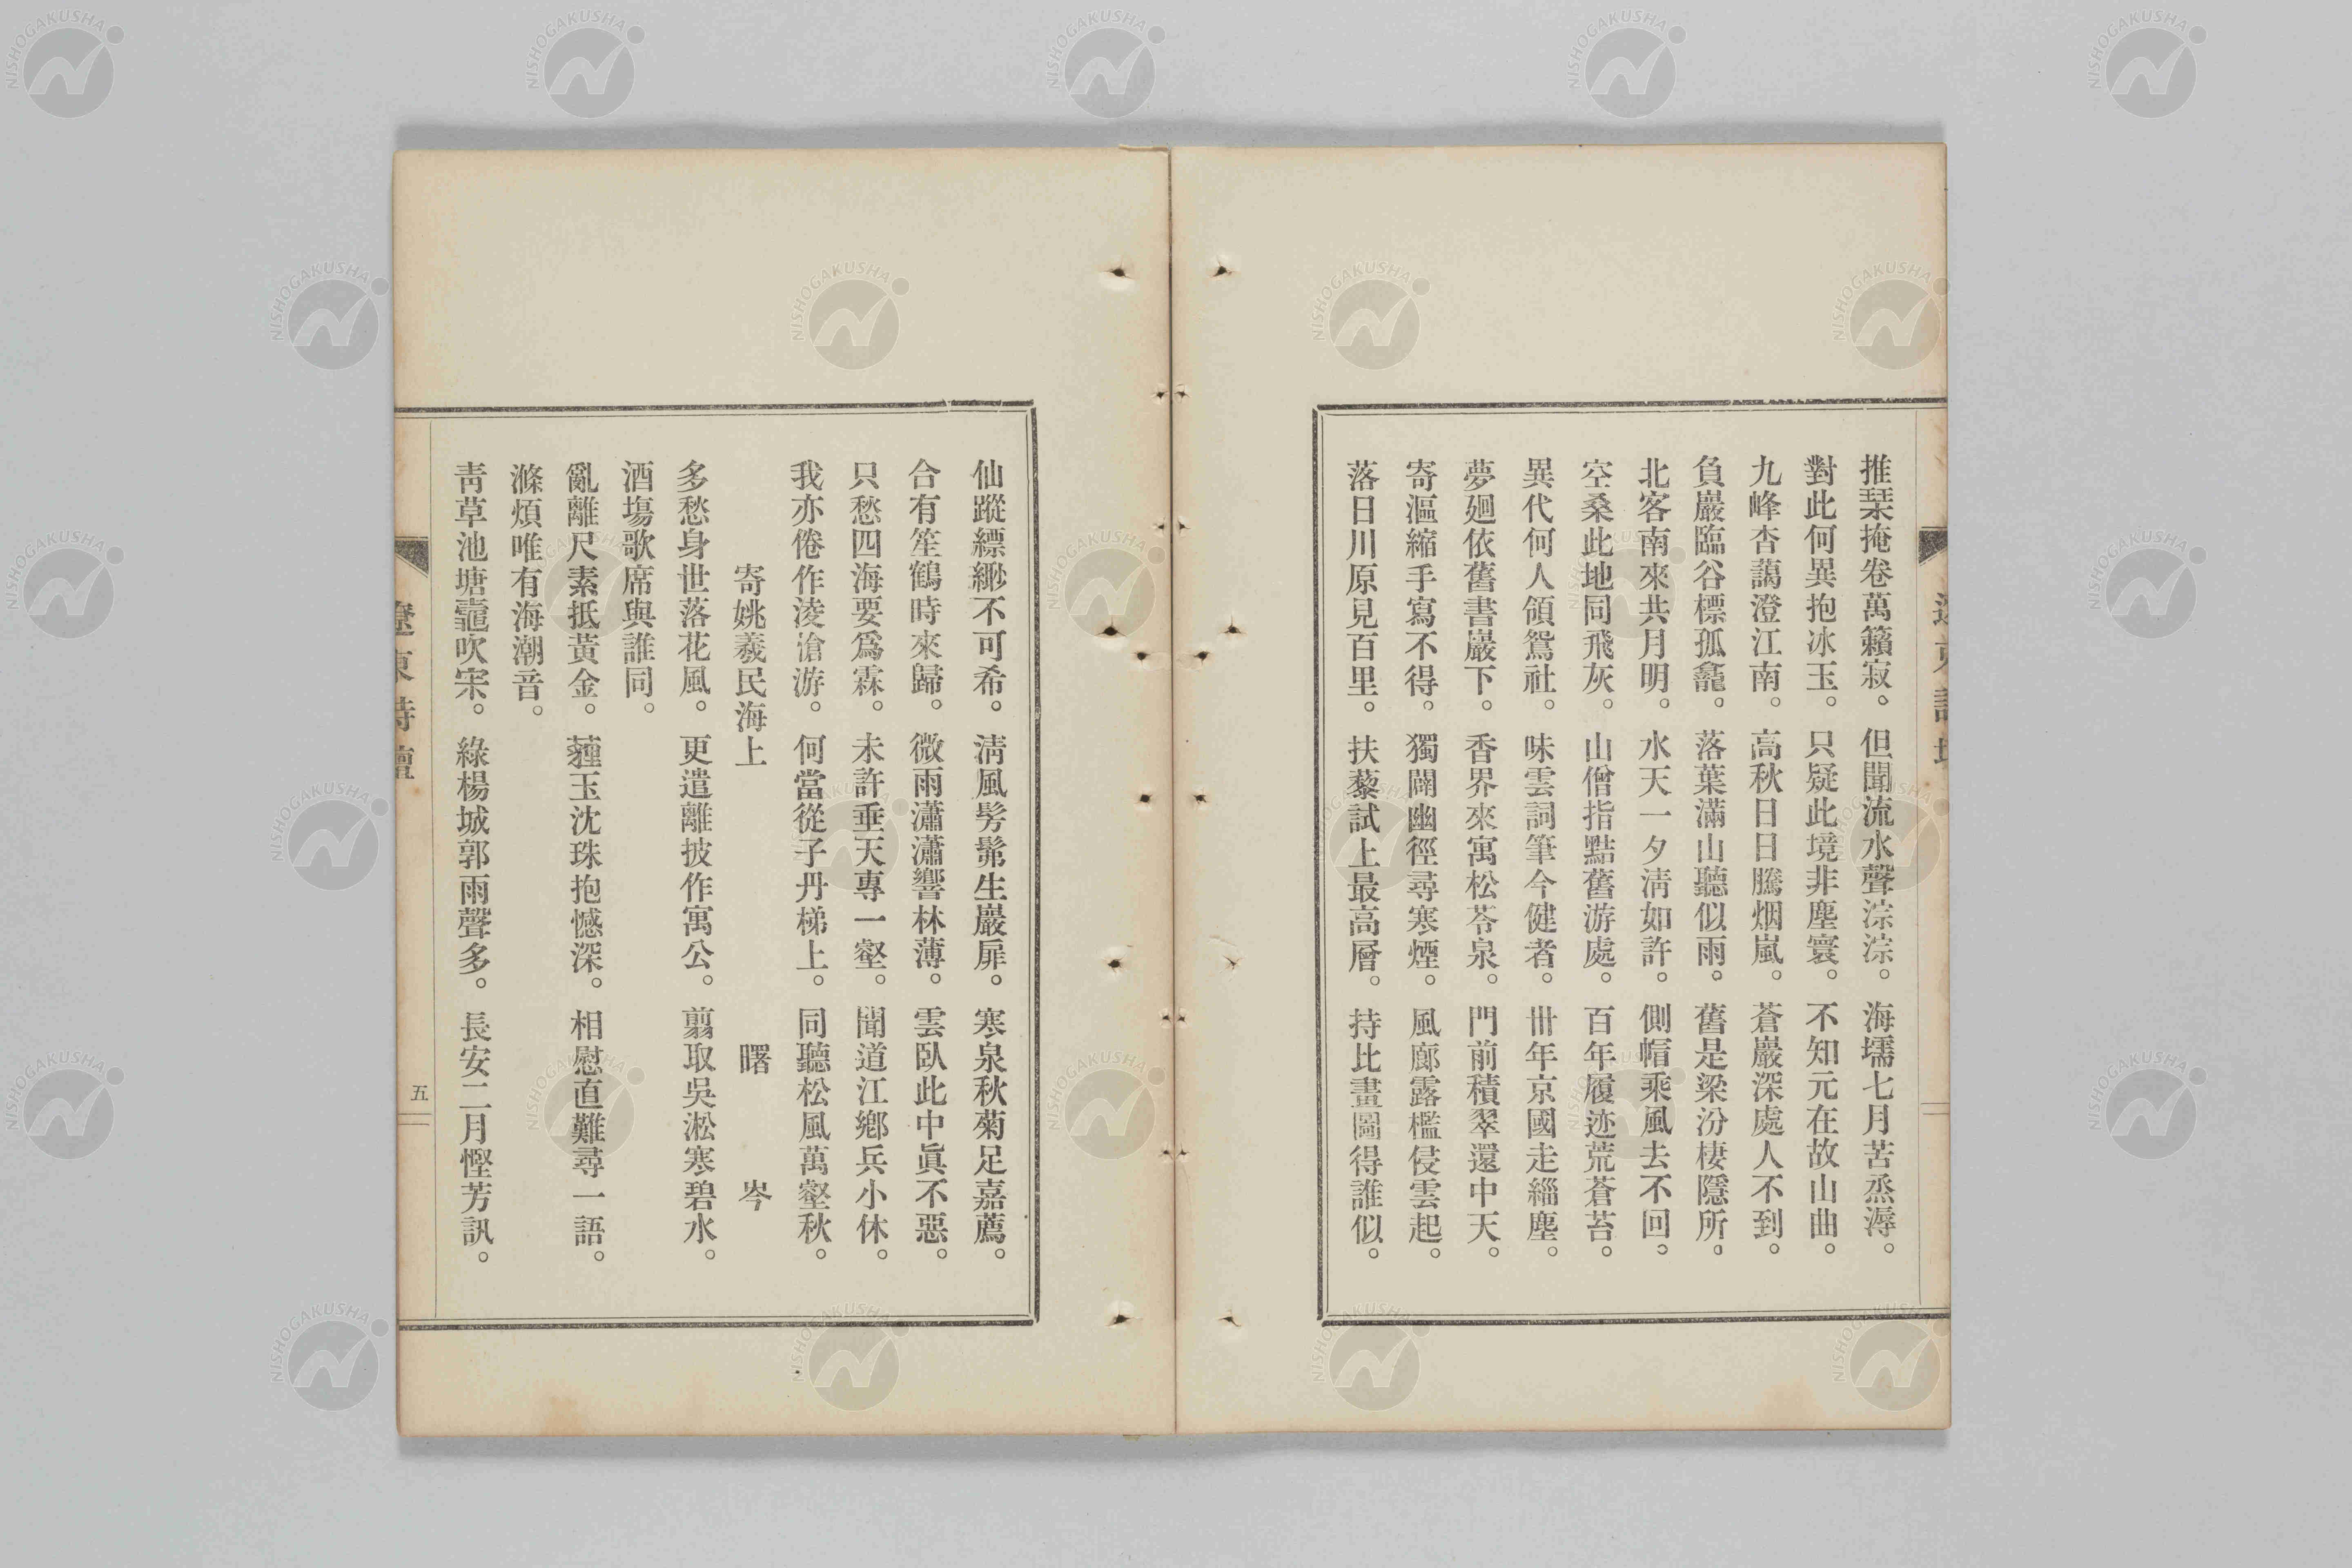 推琹掩卷萬籟寂。但聞流水聲淙淙。海壖七月苦烝溽。
對此何異抱冰玉。只疑此境非塵寰。不知元在故山曲。
九峰杳藹澄江南。高秋日日騰烟嵐。蒼巖深處人不到。
負巖臨谷標孤龕。落葉滿山聽似雨。舊是梁汾棲隱所。
北客南來共月明。水天一夕淸如許。側帽乘風去不回。
空桑此地同飛灰。山僧指點舊游處。百年履迹荒蒼苔。
異代何人領鴛社。味雲詞筆今健者。卌年京國走緇塵。
夢廻依舊書巖下。香界來寓松苓泉。門前積翠還中天。
寄漚縮手寫不得。獨闢幽徑尋寒煙。風廊露檻侵雲起。
落日川原見百里。扶藜試上最高層。持比畫圖得誰似。
仙蹤縹緲不可希。淸風髣髴生巖扉。寒泉秋菊足嘉薦。
合有笙鶴時來歸。微雨瀟瀟響林薄。雲臥此中眞不惡。
只愁四海要爲霖。未許垂天專一壑。聞道江鄉兵小休。
我亦倦作淩滄游。何當從子丹梯上。同聽松風萬壑秋。
寄姚羲民海上 曙岑
多愁身世落花風。更遣離披作寓公。翦取吳淞寒碧水。
酒塲歌席與誰同。
亂離尺素抵黃金。薶玉沈珠抱憾深。相慰直難尋一語。
滌煩唯有海潮音。
靑草池塘鼃吹宋。綠楊城郭雨聲多。長安二月慳芳訊。
遼東詩壇
五